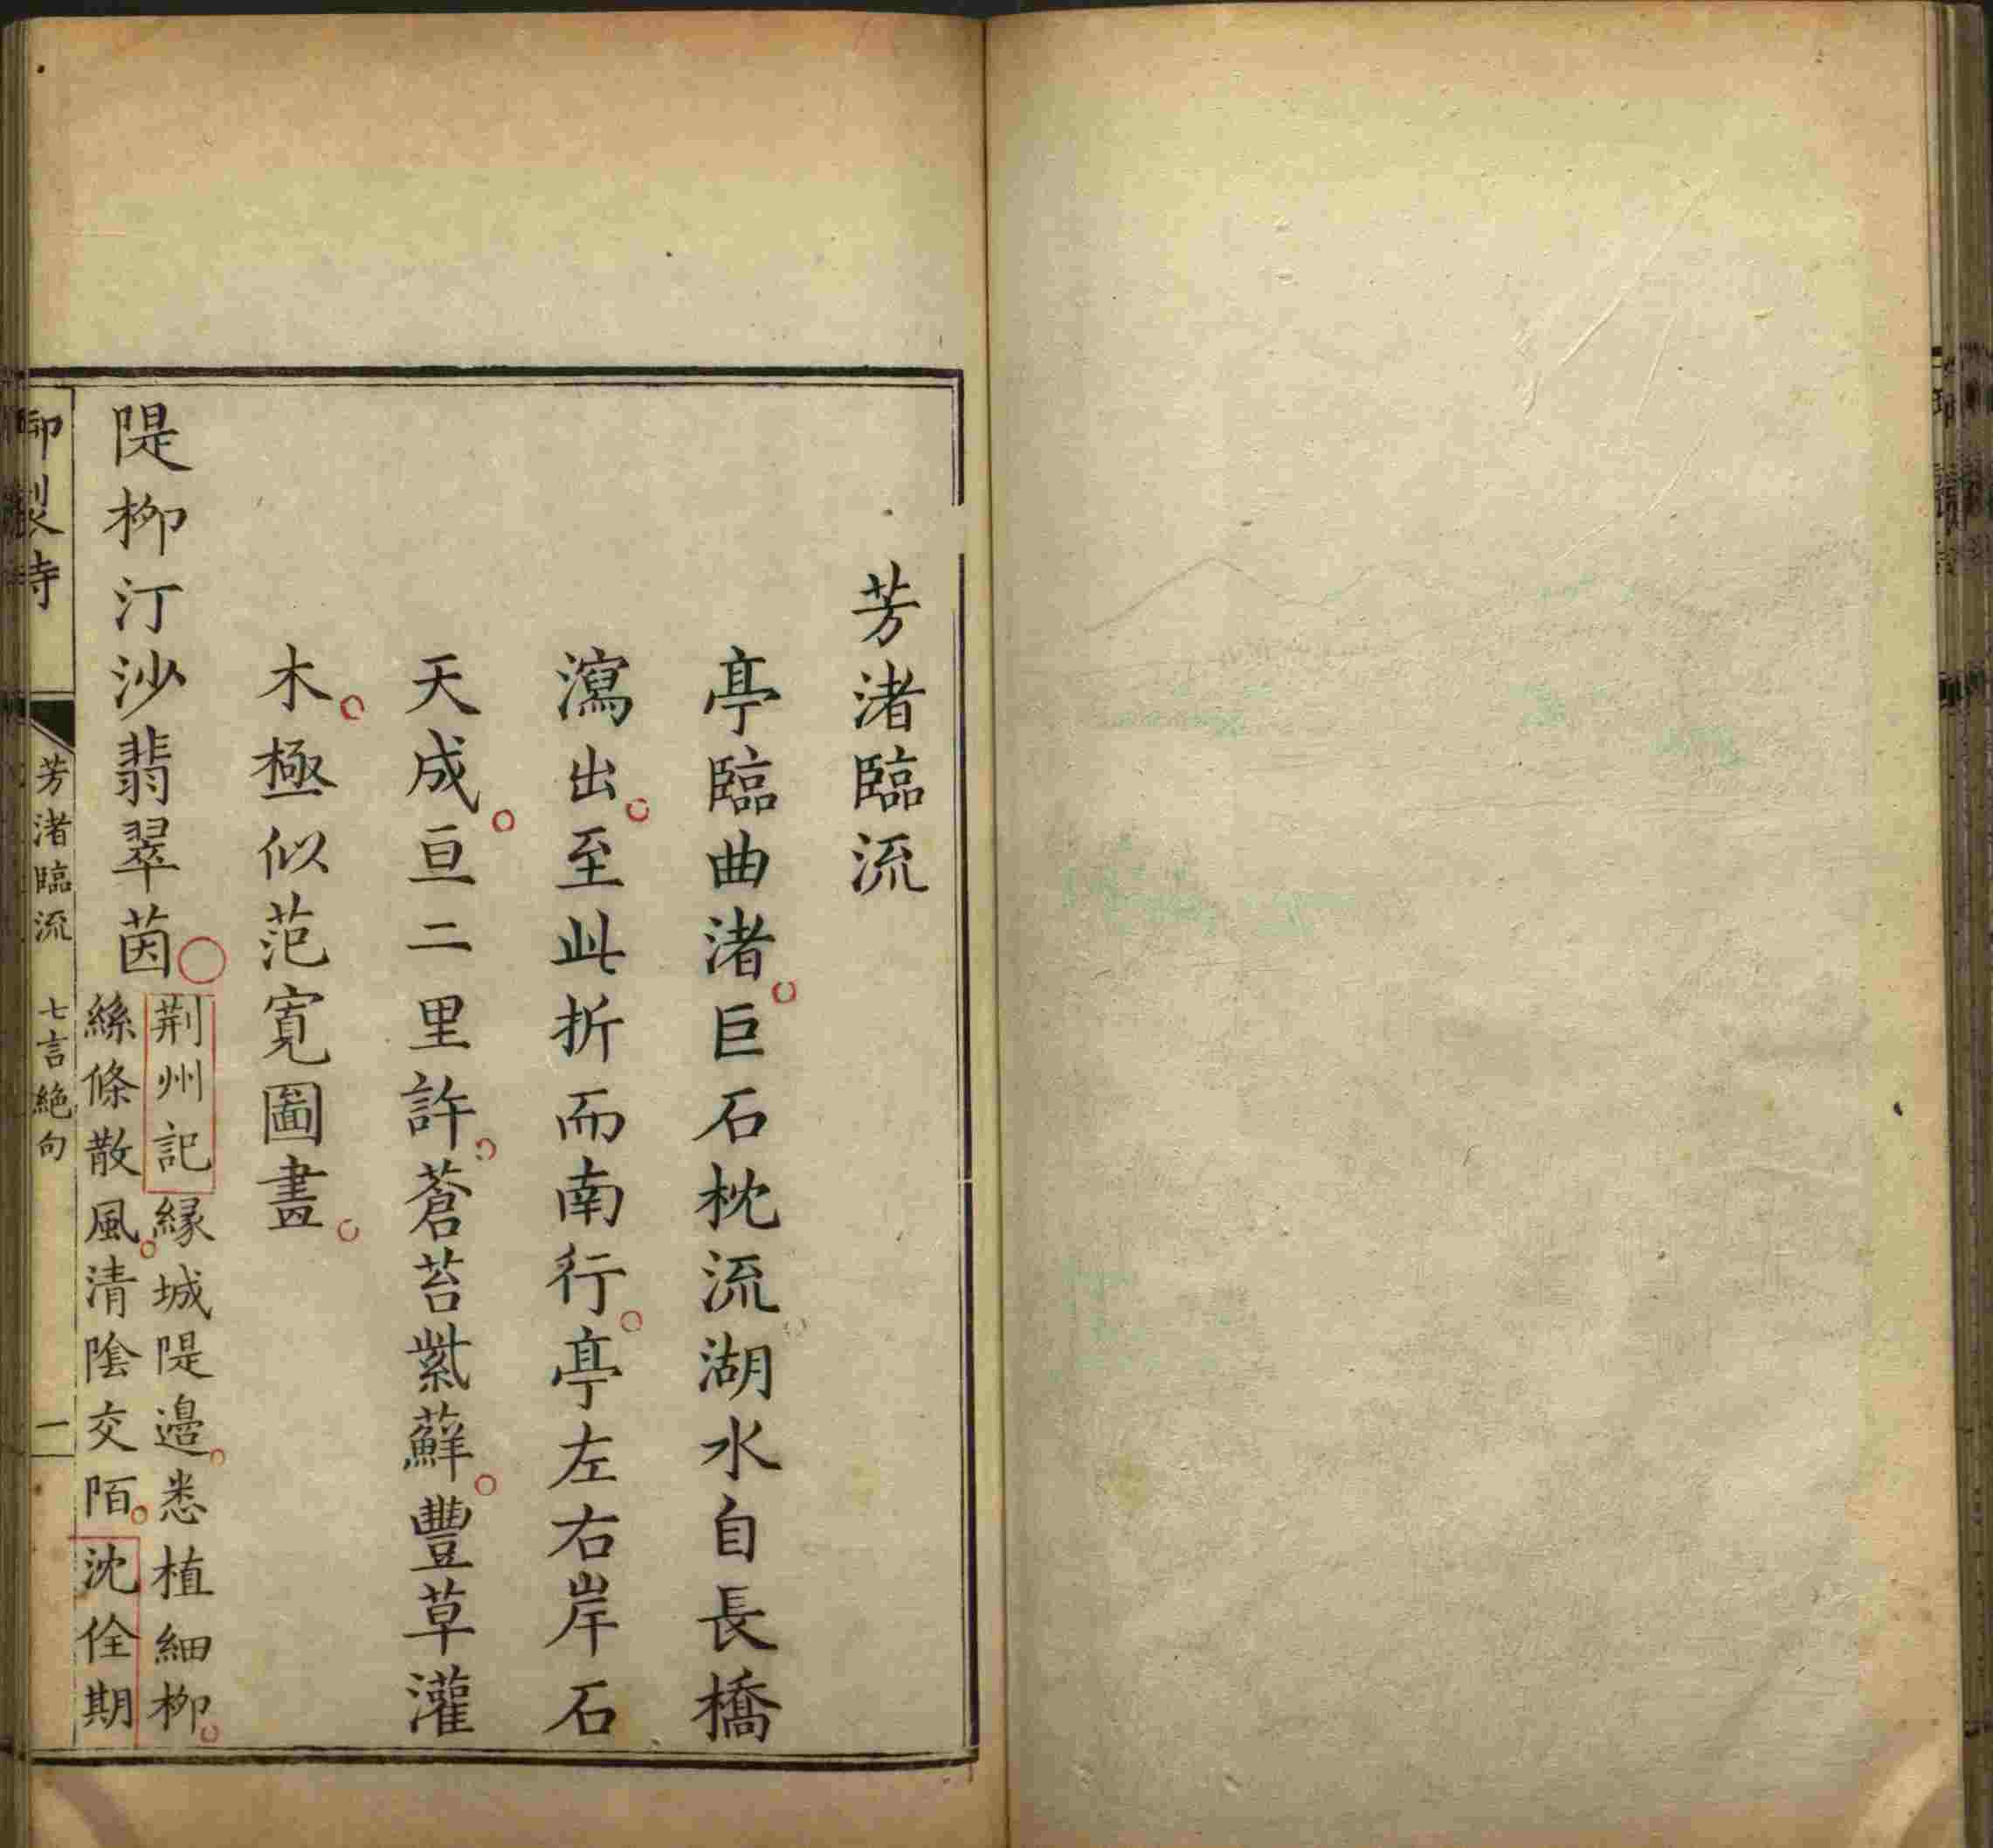 芳渚臨流
亭臨曲渚巨石枕流湖水自長橋
瀉出至此折而南行亭左右岸石
天成亘二里許蒼苔紫蘚豐草灌
木極似范寬圖畫
隄柳汀沙翡翠茵
荆州記緣城隄邉悉植細柳
絲條散風清陰交陌沈佺期
御製詩
芳渚臨流 七言絶句
一